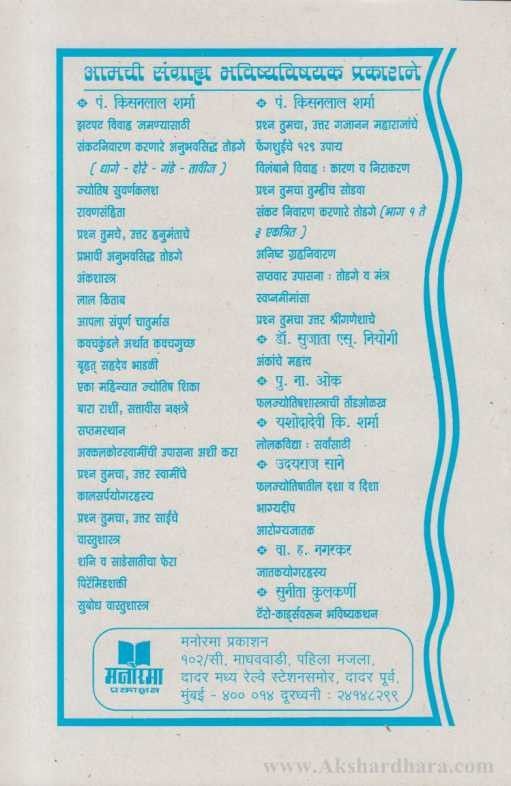 आमची संग्राह्य भविष्यविषयक प्रकाशने
❖ पं. किसनलाल शर्मा
झटपट विवाह जमण्यासाठी
संकटनिवारण करणारे अनुभवसिद्ध तोडगे
( धागे - दोरे - गंडे - तावीज )
ज्योतिष सुवर्णकलश
रावणसंहिता
प्रश्न तुमचे, उत्तर हनुमंताचे
प्रभावी अनुभवसिद्ध तोडगे
अंकशास्त्र
लाल किताब
आपला संपूर्ण चातुर्मास
कवचकुंडले अर्थात कवचगुच्छ
बृहत् सहदेव भाडळी
एका महिन्यात ज्योतिष शिका
बारा राशी, सत्तावीस नक्षत्रे
सप्तमस्थान
अक्कलकोटस्वामींची उपासना अशी करा
प्रश्न तुमचा, उत्तर स्वामींचे
कालसर्पयोगरहस्य
प्रश्न तुमचा, उत्तर साईचे
वास्तुशास्त्र
शनि व साडेसातीचा फेरा
पिरॅमिडशक्ती
सुबोध वास्तुशास्त्र
❖ पं. किसनलाल शर्मा
प्रश्न तुमचा, उत्तर गजानन महाराजांचे
फेंगशुईचे १२९ उपाय
विलंबाने विवाह : कारण व निराकरण
प्रश्न तुमचा तुम्हीच सोडवा
संकट निवारण करणारे तोडगे (भाग १ ते
३ एकत्रित )
अनिष्ट ग्रहनिवारण
सप्तवार उपासना : तोडगे व मंत्र
स्वप्नमीमांसा
प्रश्न तुमचा उत्तर श्रीगणेशाचे
❖ डॉ. सुजाता एस्. नियोगी
अंकांचे महत्त्व
❖ पु. ना. ओक
फलज्योतिषशास्त्राची तोंडओळख
❖ यशोदादेवी कि. शर्मा
लोलकविद्या : सर्वांसाठी
❖ उदयराज साने
फलज्योतिषातील दशा व दिशा
भाग्यदीप
आरोग्यजातक
❖ वा. ह. नगरकर
जातकयोगरहस्य
❖ सुनीता कुलकर्णी
टॅरो-कार्ड्सवरून भविष्यकथन
मनोरमा
प्रकाशन
मनोरमा प्रकाशन
१०२/सी, माधववाडी, पहिला मजला,
दादर मध्य रेल्वे स्टेशनसमोर, दादर पूर्व,
मुंबई - ४०० ०१४ दूरध्वनी : २४१४८२९९
www.Akshardhara.com